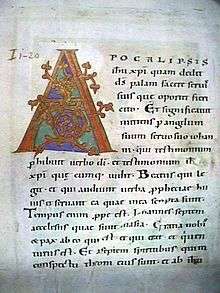 I 1-20
APOCALIPSIS
ihu xpi quam dedit
ds palam facere servi
suis que oportet fieri
cito. Et significavit
mittens p angelum
suum servo suo iohan
ni. qui testimonium
phibuit verbo di. et testimonium ih
xpi que cumq; vidit. Beatus qui le
git. et qui audiunt verba prophetiae hui
us et servant ea quae in ea scripta sunt.
Tempus enim ppe est. Iohannes septem
aecclesiis quae sunt in asia. Gratia vobis
et pax ab eo qui est et qui erat et qui ven
turus est. Et a septem spiritibus qui in
conspectu throni eius sunt. et ab ihu